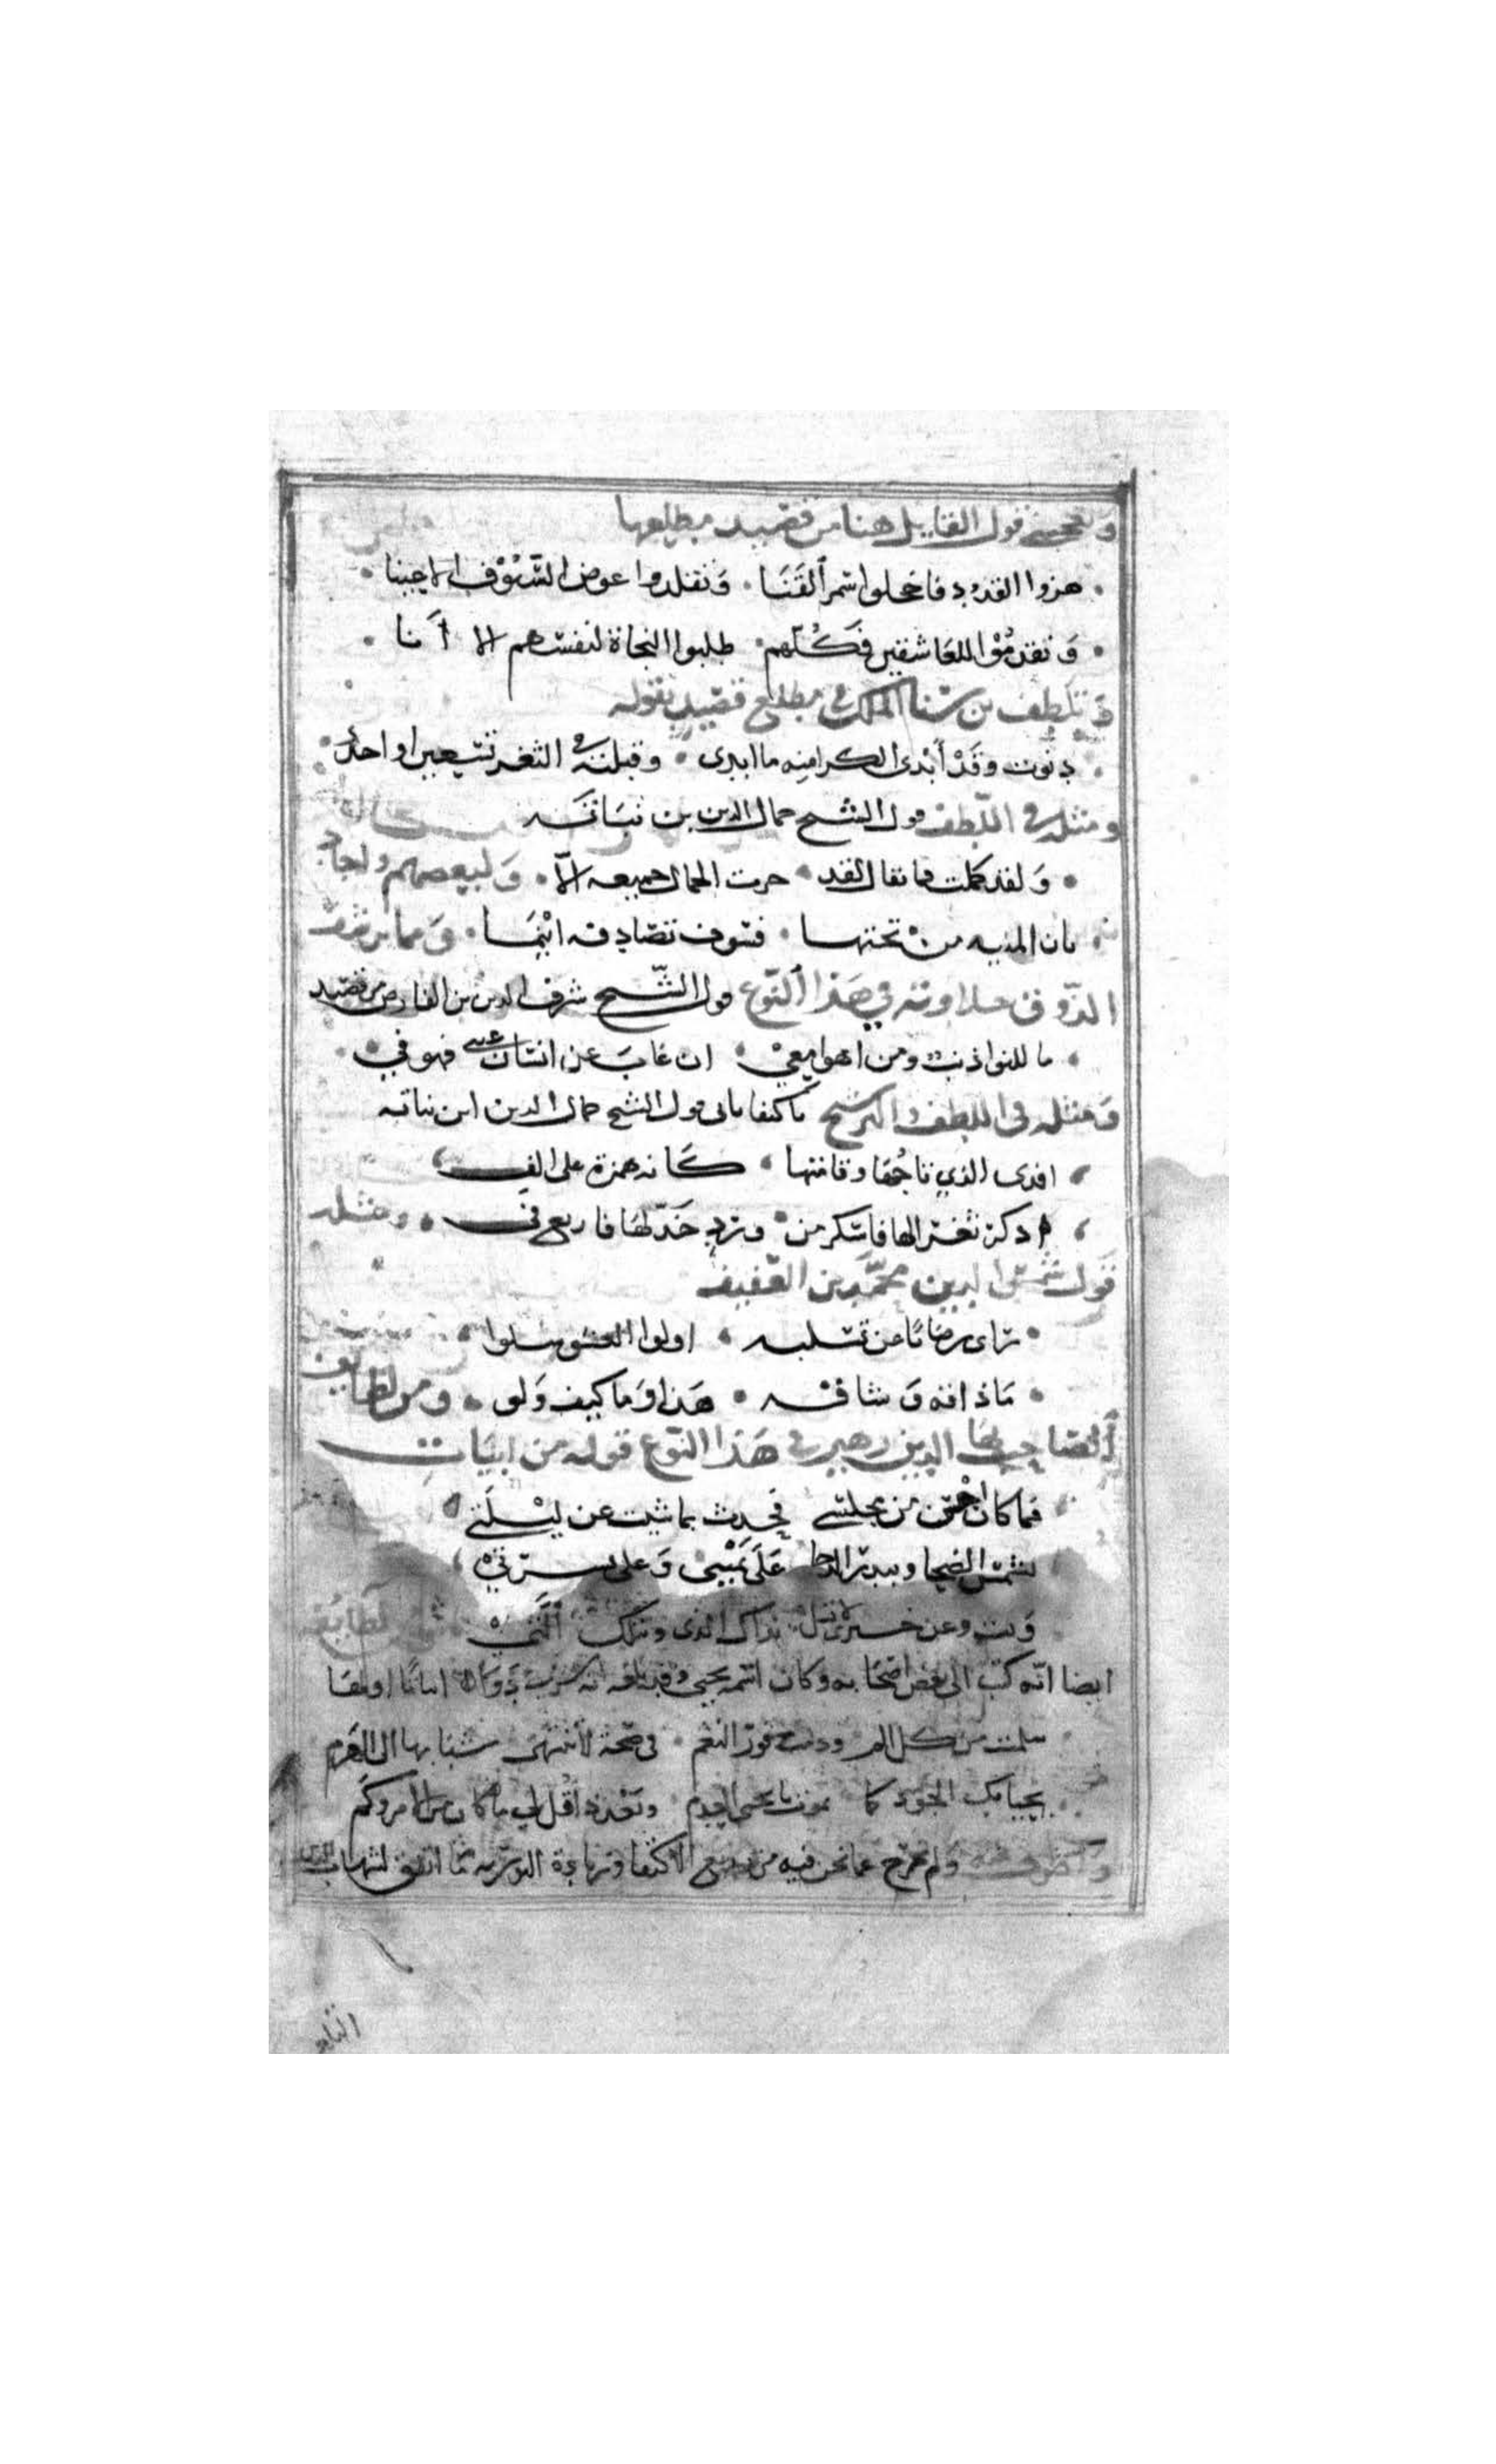 ويعجبني قول القايل هنا من قصيد مطلعها
هزوا القدود فاخجلوا سمر ٱلقَنَا • وَتقلدوا عوض السّيُوْف الاعينا •
• وَتقدمُوْا للعَاشقين فَكُلّهم • طلبوا النجاة لنفسهم الا أنا •
وَتلطف بن سنا الملك في مطلع قصيد بقوله
• دنوت وقَدْ أبْدى الكرا منه ما ابدى • وقبلته في الثغر تسعين او احدى •
ومثله في اللّطف قول الشيخ جمال الدين بن نبَاتَه
• وَلقد كملت فما يقال لقد • حزت الجمال جميعه الاّ • وَلبعضهم واجاد
بان المنيه منْ تحتها • فسوف تصَادفه ايْنَمَا • وَمما يرشف
الذّوق حلاوته في هَذا ٱلنّوع قول الشّيخ شرف الدين بن الفارض من قصيد
• ما للنوا ذنب ومن اهوا معيْ • ان غابَ عن انسان عيني فهو في •
وَمثله في اللطف والترشيح باكتفايي قول الشيخ جمال الدين ابن نباته
افدى الذي تاجُهَا وقامتها • كَانه همزة على الف
اذكر ثغرا لها فاسكر من • ورد خَدّ لهَا فاربع في • ومثله
قول شمس الدين محمّد بن العفيف
• راى رضَابًا عن تسليه • اولوا العشق سلوا
• مَا ذاقه وَشاقه • هَذا وَما كيف وَلو • ومن لطايف
ٱلصّاحب بهَا الدين زهير في هَذا النّوع قوله من ابيَات
فما كان احْسن من مجلسي فحدث بما شيت عن ليْلَتي
بشمس الضحا وببدر الدجا عَلَى يَمْنَتيْ وَعلى يسرتيْ
وَبت وعن خبري لا تسل بذاك الذى وتلك ٱلَّتيْ لطايفه
ايضا انّه كتب الى بعض اصْحَابه وكان اسمه يحيى وقد بلغه انه شرب دَوَاء ابياتا اولهَا
سلمت من كل الم ودمت موفور النعم • في صحة لا ينتهي شبابها الى الهَرم
يحيا بك الجود كما يموت يا يحيى العدم • وبَعْد ذا قُل لي ما كان من الامر وكَم
ولم نخرج عما نحن فيه من بديع الاكتفا وزيادة التوريه ما اتفق لشهاب الدين